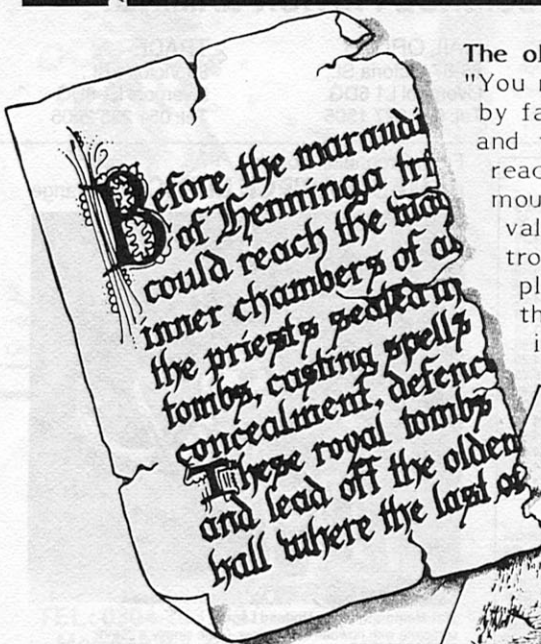 The ol
"You
by fa
and
reac
mou
val
tro
pl
th
i
Before the maraudi
of Henninga tri
could reach the
inner chambers of
the priests sealed
tombs, casting spells
concealment, defenc
These royal tombs
and lead off the olden
hall where the last of